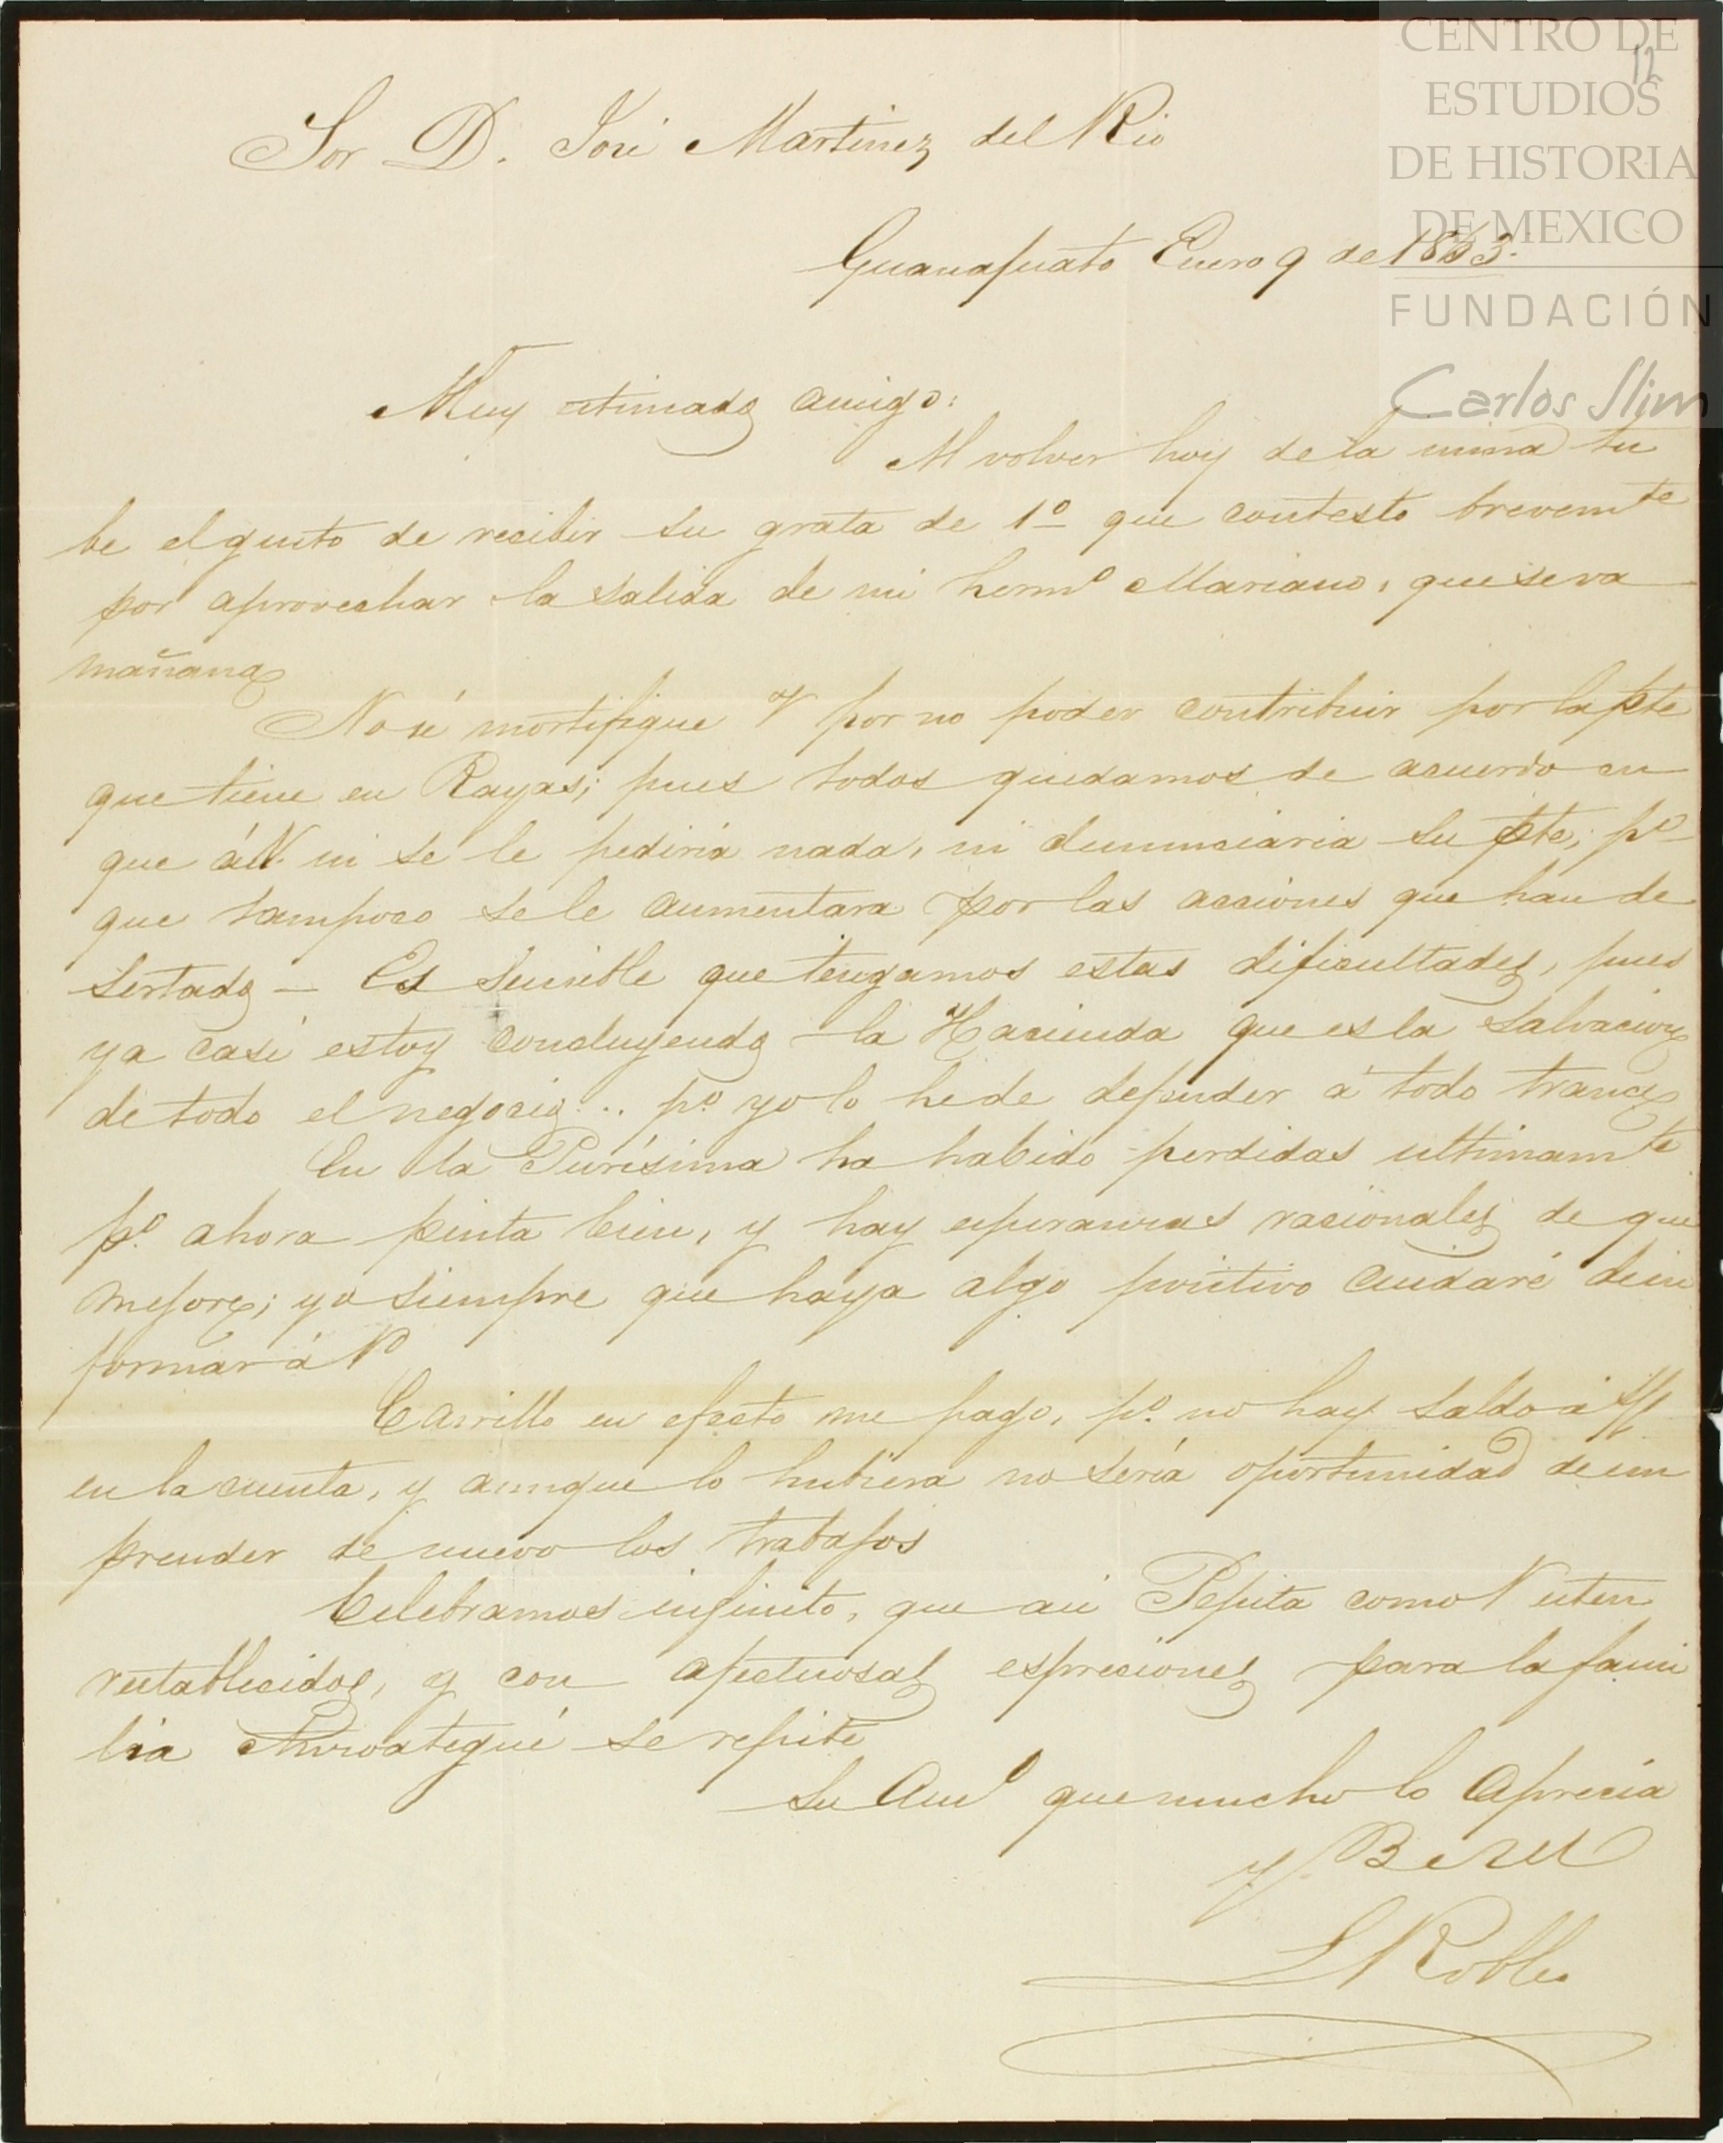 CENTRO DE
ESTUDIOS
DE HISTORIA
DE MEXICO
FUNDACIÓN
Carlos Slim
12
Sor D. José Martinez del Rio
Guanajuato Enero 9 de 1863.
Muy estimado amigo:
Al volver hoy de la mina tu
be el gusto de recibir su grata de 1º que contesto brevemte
por aprovechar la salida de mi hermº Mariano, que se va
mañana
No se mortifique V por no poder contribuir por la pte
que tiene en Rayas; pues todos quedamos de acuerdo en
que á V. ni se le pediria nada, ni denunciaria su pte, pº
que tampoco se le aumentara por las acciones que han de
sertado — Es sensible que tengamos estas dificultades, pues
ya casi estoy concluyendo la Hacienda que es la salvacion
de todo el negocio... pº yo lo he de defender á todo trance
En la Purísima ha habido perdidas ultimamte
pº ahora pinta bien, y hay esperanzas racionales de que
mejore; yo siempre que haya algo positivo cuidaré de in
formar á V
Carrillo en efecto me pago, pº no hay saldo á
en la cuenta, y aunque lo hubiera no sería oportunidad de em
prender de nuevo los trabajos
Celebramos infinito, que asi Pepita como V esten
restablecidos, y con afectuosas espresiones para la fami
lia se repite
Su Amº que mucho lo aprecia
y B S M
L Robles